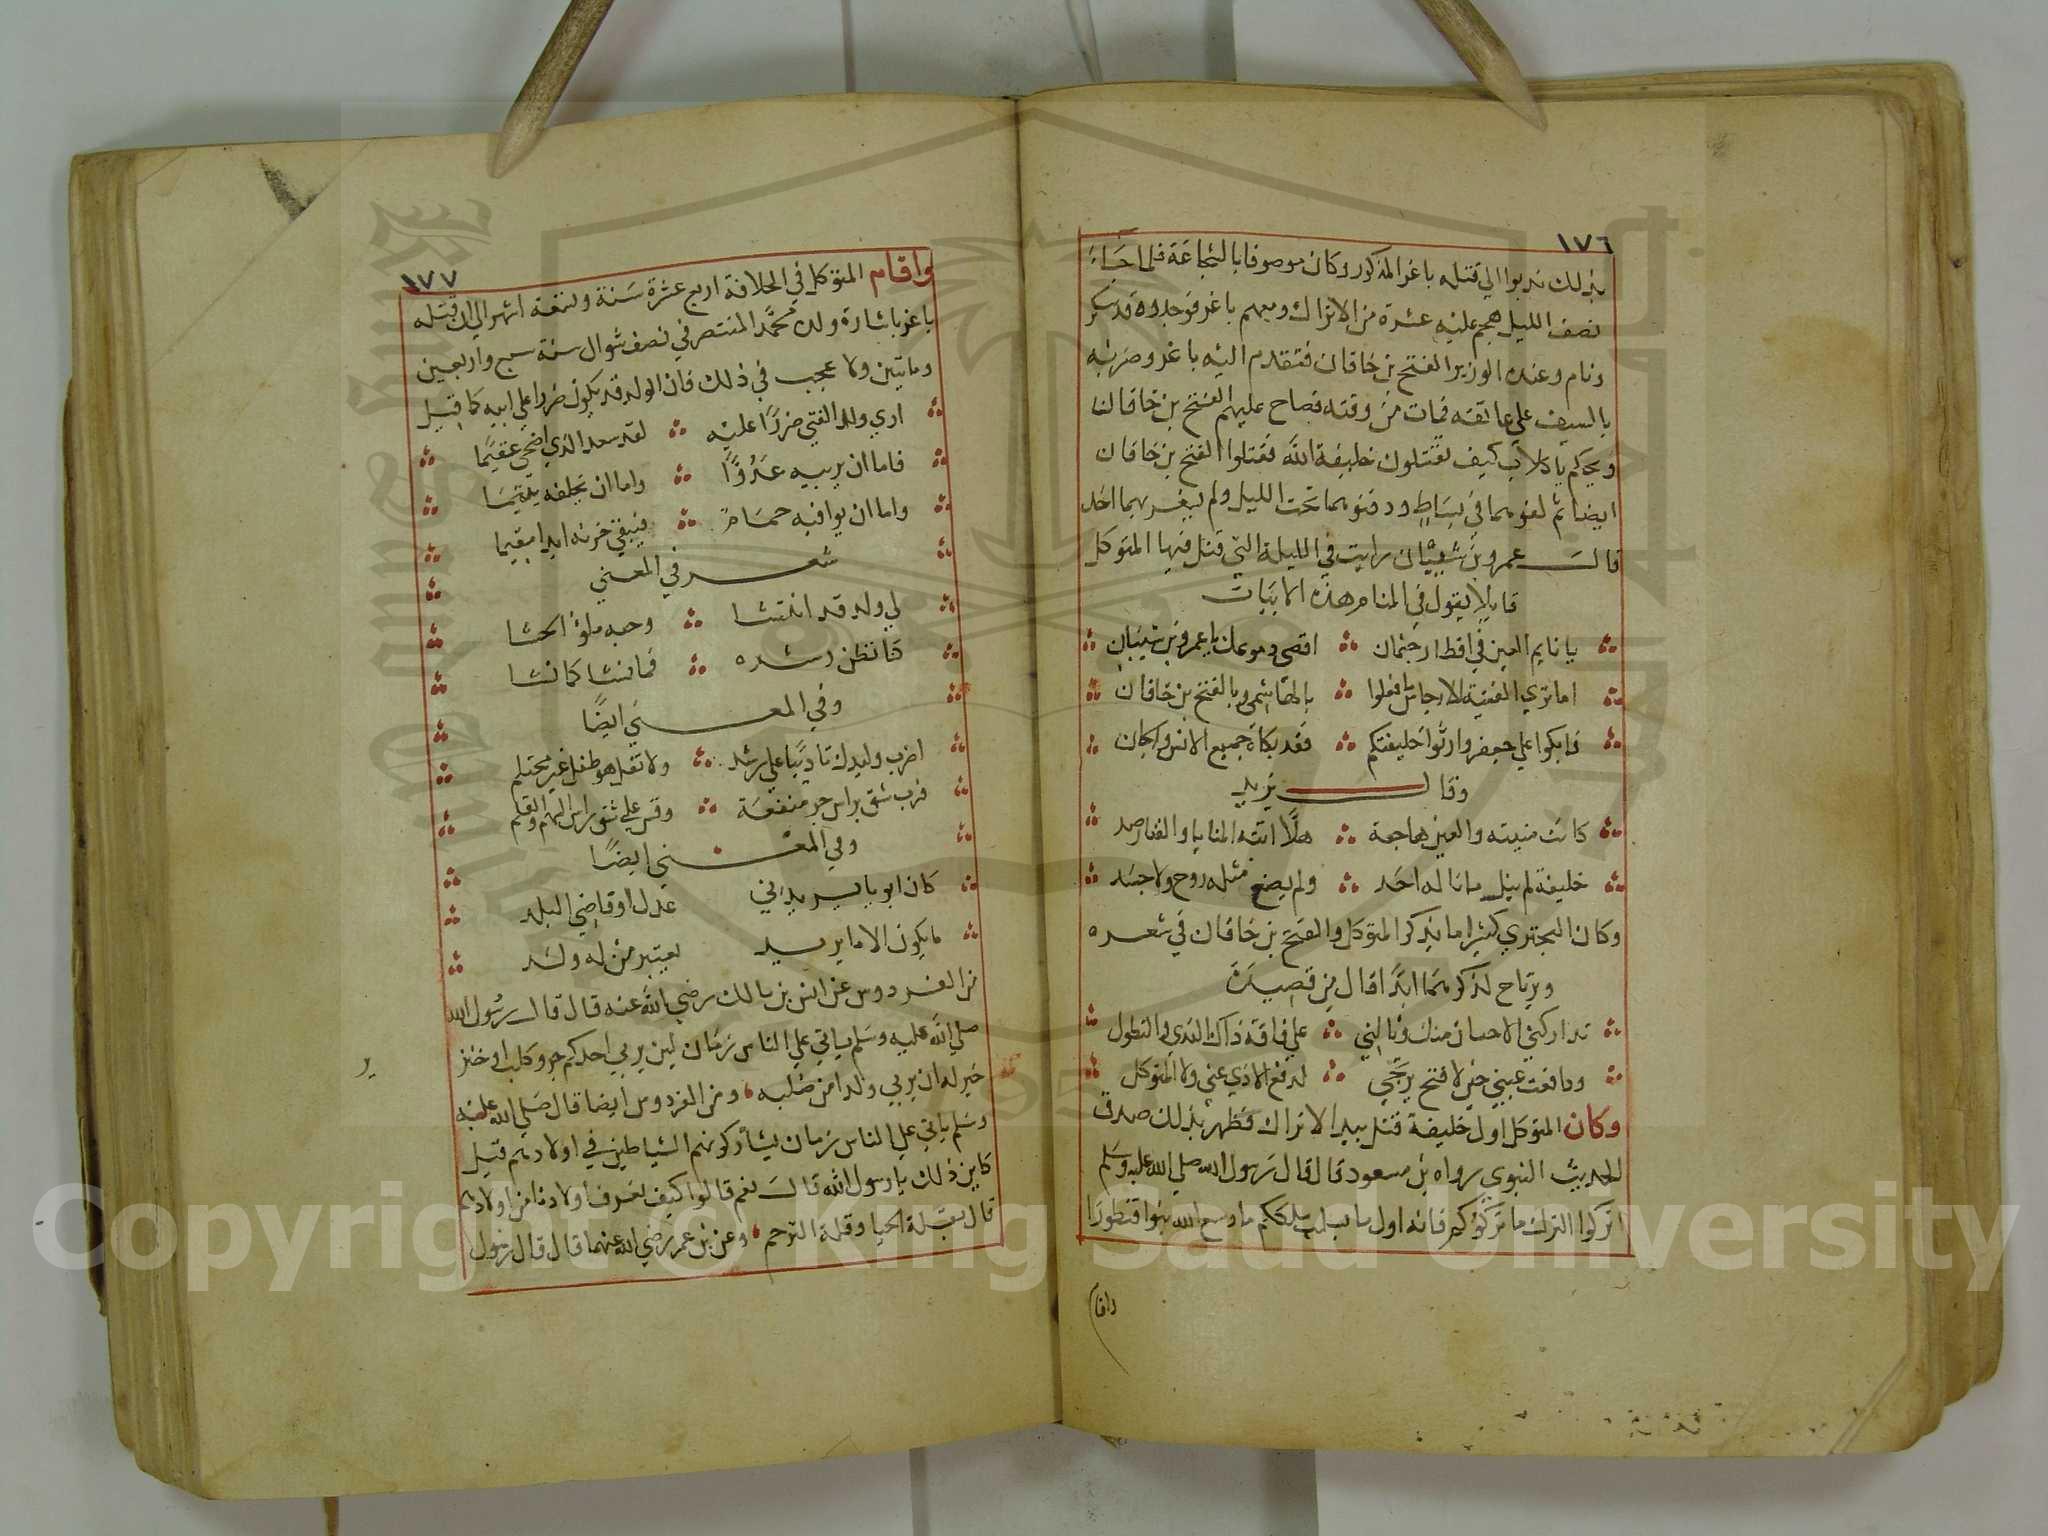 ١٧٦
بذلك ندبوا الي قتله باغر المذكور وكان موصوفا بالشجاعة فلما جاء
نصف الليل هجم عليه عشرة من الاتراك ومعهم باغر فوجدوه قد سكر
ونام وعنده الوزير الفتح بن خاقان فتقدم اليه باغر وضربه
بالسيف علي عاتقه فمات من وقته فصاح عليهم الفتح بن خاقان
ويحكم يا كلاب كيف تقتلون خليفة الله فقتلوا الفتح بن خاقان
ايضا ثم لفوهما في بساط ودفنوهما تحت الليل ولم يشعر بهما احد
قالــ عمرو بن شيبان رايت في الليلة التي قتل فيها المتوكل
قايلا يقول في المنام هذه الابيات
يا نايم العين في اقطار جثمان اقضي دموعك يا عمرو بن شيبان
اما تري الفتية الارجاس ما فعلوا بالهاشمي وبالفتح بن خاقان
فابكوا علي جعفر وارثوا خليفتكم فقد بكاه جميع الانس والجان
وقالــ يزيد
كانت منيته والعين هاجعة هلا اتته المنايا والقنا قصد
خليفة لم ينل ما ناله احد ولم يضع مثله روح ولا جسد
وكان البحتري كثيرا ما يذكر المتوكل والفتح بن خاقان في شعره
ويرتاح لذكرهما ابدا قال من قصيدة
تداركني الاحسان منك ونالني علي فاقة ذاك الندي والتطول
ودافعت عني حين لا فتح يرتجي لدفع الاذي عني ولا المتوكل
وكان المتوكل اول خليفة قتل بيد الاتراك فظهر بذلك صدق
الحديث النبوي رواه بن مسعود قال قال رسول الله صلي الله عليه وسلم
اتركوا الترك ما تركوكم فانه اول ما يسلب ملككم ما وسع الله بنوا قنطورا
واقام
١٧٧
واقام المتوكل في الخلافة اربع عشرة سنة وتسعة اشهر الي ان قتله
باغر باشارة ولده محمد المنتصر في نصف شوال سنة سبع واربعين
ومايتين ولا عجب في ذلك فان الولد قد يكون ضررا علي ابيه كما قيل
اري ولد الفتي ضررا عليه لقد سعد الذي اضحي عقيما
فاما ان يربيه عدوا واما ان يخلفه يتيما
واما ان يوافيه حمام فيبقي حزنه ابدا مقيما
شعر في المعني
لي ولد قد انتشا وحبه ملؤ الحشا
كنا نظن رشده فما نشا كما نشا
وفي المعني ايضا
اضرب وليدك تاديبا علي رشد ولا تقل هو طفل غير محتلم
فرب شق براس جر منفعة وقس علي شق راس السهم والقلم
وفي المعني ايضا
كان ابو يا يريداني عدل او قاضي البلد
ما يكون الا ما يريد يعتبر من له ولد
من الفردوس عن انس بن مالك رضي الله عنه قال قال رسول الله
صلي الله عليه وسلم ياتي علي الناس زمان لين يربي احدكم جرو كلب او خنز
ير
خير له ان يربي ولدا من صلبه ومن الفردوس ايضا قال صلي الله عليه
وسلم ياتي علي الناس زمان يشاركونهم الشياطين في اولادهم قيل
كاين ذلك يا رسول الله قال نعم قالوا كيف نعرف اولادنا من اولادهم
قال بقلة الحيا وقلة الترحم وعن بن عمر رضي الله عنهما قال قال رسول
Copyright © King Saud University